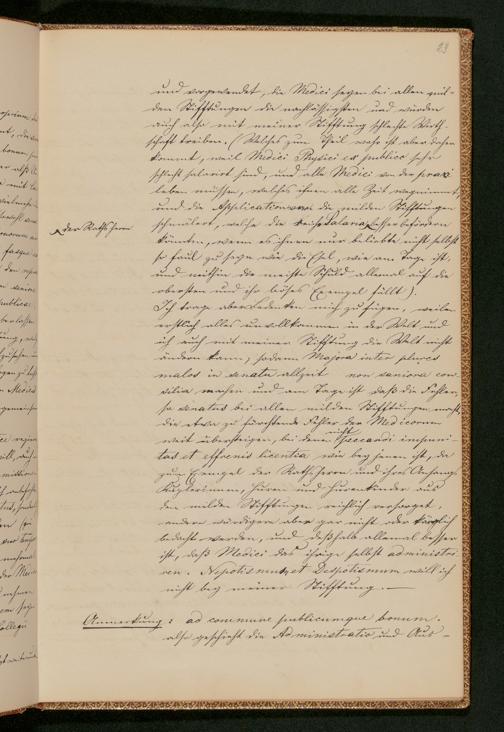 23
und vorgewendet, die Medici seyen bei allen mil-
den Stifftungen die nachlässigsten und würden
auch also mit meiner Stifftung schlechte Wirth-
schaft treiben. (Welches zum Theil wahr ist aber daher
kommt, weil Medici Physici ex publico sehr
schlecht salarirt sind, und alle Medici von der praxi
leben müssen, welches ihnen alle Zeit wegnimmt,
und die Application an die milden Stifftungen
schmälert, welche die Salaria besser befördern
der Rathsherrn
könnten, wenn es ihnen nur beliebte nicht selbst
so faul zu seyn wie die Esel, wie am Tage ist,
und mithin die meiste Schuld allemal auf die
obersten und ihr böses Exempel fällt).
Ich trage aber Bedenken mich zu fügen, weilen
erstlich alles unvollkommen in der Welt und
ich auch mit meiner Stifftung die Welt nicht
ändern kann, sodann Majora inter plures
malos in senatu allzeit non saniora con-
silia machen und am Tage ist daß die Fehler,
so senatus bei allen milden Stifftungen macht,
die etwa zu fürchtende Fehler der Medicorum
weit übersteigen, bei denen nicht peccandi impuni-
tas et effrenis licentia wie bey jenen ist, da
zum Exempel der Rathsherrn und ihres Anhangs
Kupplerinnen, Huren und Hurenkinder aus
den milden Stifftungen reichlich versorget,
andere würdigere aber gar nicht oder kärglich
bedacht werden, und deßhalb allemal besser
ist, daß Medici das ihrige selbst administri-
ren. Nepotismum et Despotismum will ich
nicht bey meiner Stifftung.—
Anmerkung: ad commune publicumque bonum.
also geschieht die Administratio und Aus-